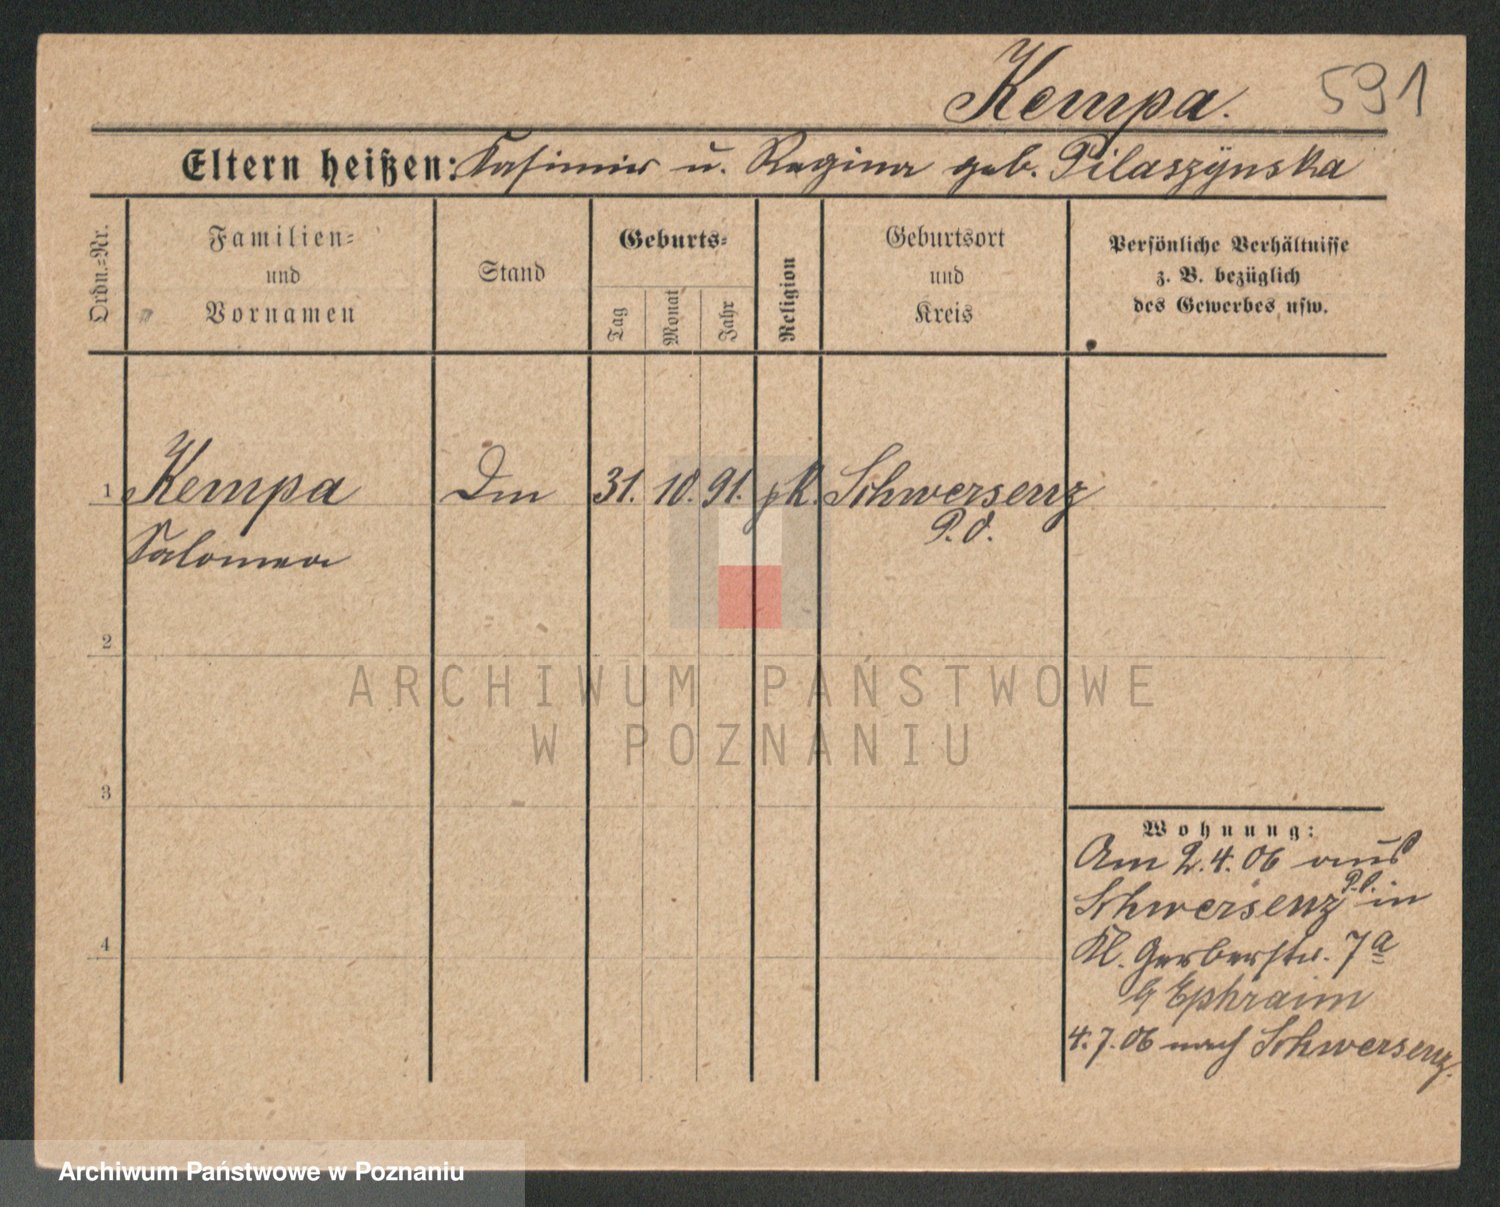 Kempa. 591
Eltern heißen: Kasimir u. Regina geb. Pilaszÿnska
Ordn.=Nr.
Familien=
und
Vornamen
Stand
Geburts=
Tag
Monat
Jahr
Religion
Geburtsort
und
Kreis
Persönliche Verhältnisse
z. B. bezüglich
des Gewerbes usw.
1 Kempa Dm 31. 10. 91. k. Schwersenz
Salomea P. O.
2
3
4
Wohnung:
Am 2.4.06 aus
Schwersenz P.O. in
Kl. Gerberstr. 7a
b/ Ephraim
4.7.06 nach Schwersenz.
ARCHIWUM PAŃSTWOWE
W POZNANIU
Archiwum Państwowe w Poznaniu